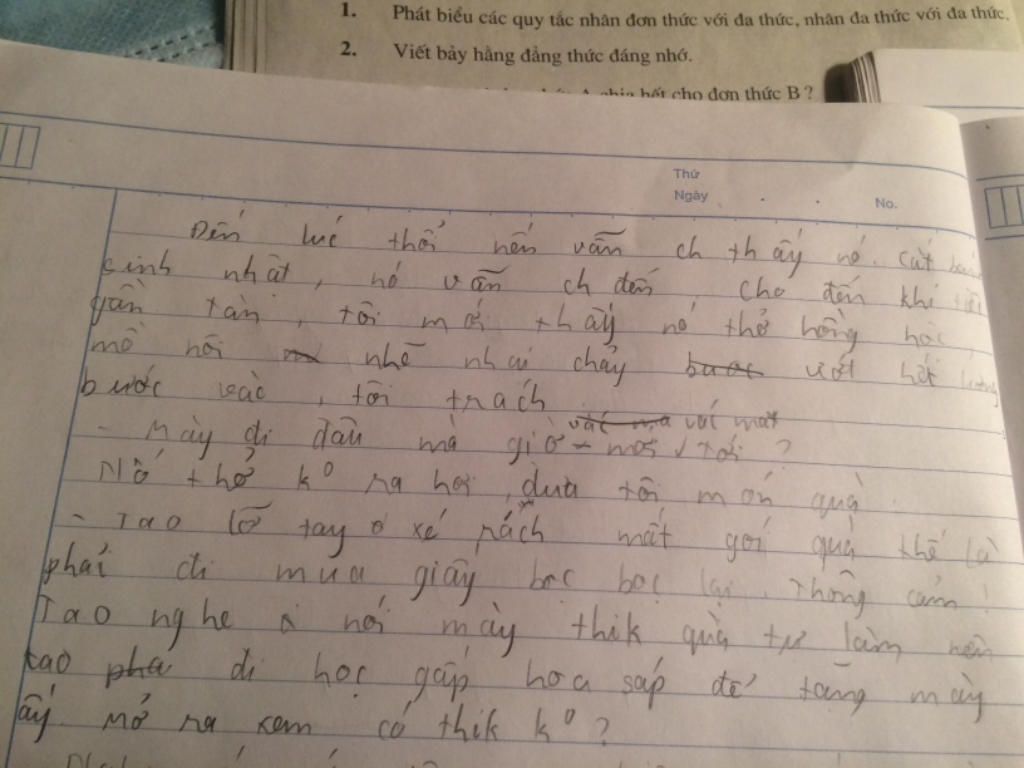 1. Phát biểu các quy tắc nhân đơn thức với đa thức, nhân đa thức với đa thức.
2. Viết bảy hằng đẳng thức đáng nhớ.
chia hết cho đơn thức B ?
Thứ
Ngày
No.
Đến lúc thổi nến vẫn ch thấy nó. Cắt bánh
sinh nhật, nó vẫn ch đến, cho đến khi tiệc
gần tàn, tôi mới thấy nó thở hồng hộc,
mồ hôi nhễ nhại chảy bước ướt hết lưng
bước vào, tôi trách
vác mặt
- Mày đi đâu mà giờ mới tới ?
Nó thở ko ra hơi, đưa tôi món quà.
- Tao lỡ tay xé rách mất gói quà thế là
phải đi mua giấy bọc bọc lại. Thông cảm !
Tao nghe nói mày thik quà tự làm nên
tao pha đi học gấp hoa sáp để tặng mày
ấy. Mở ra xem có thik ko ?